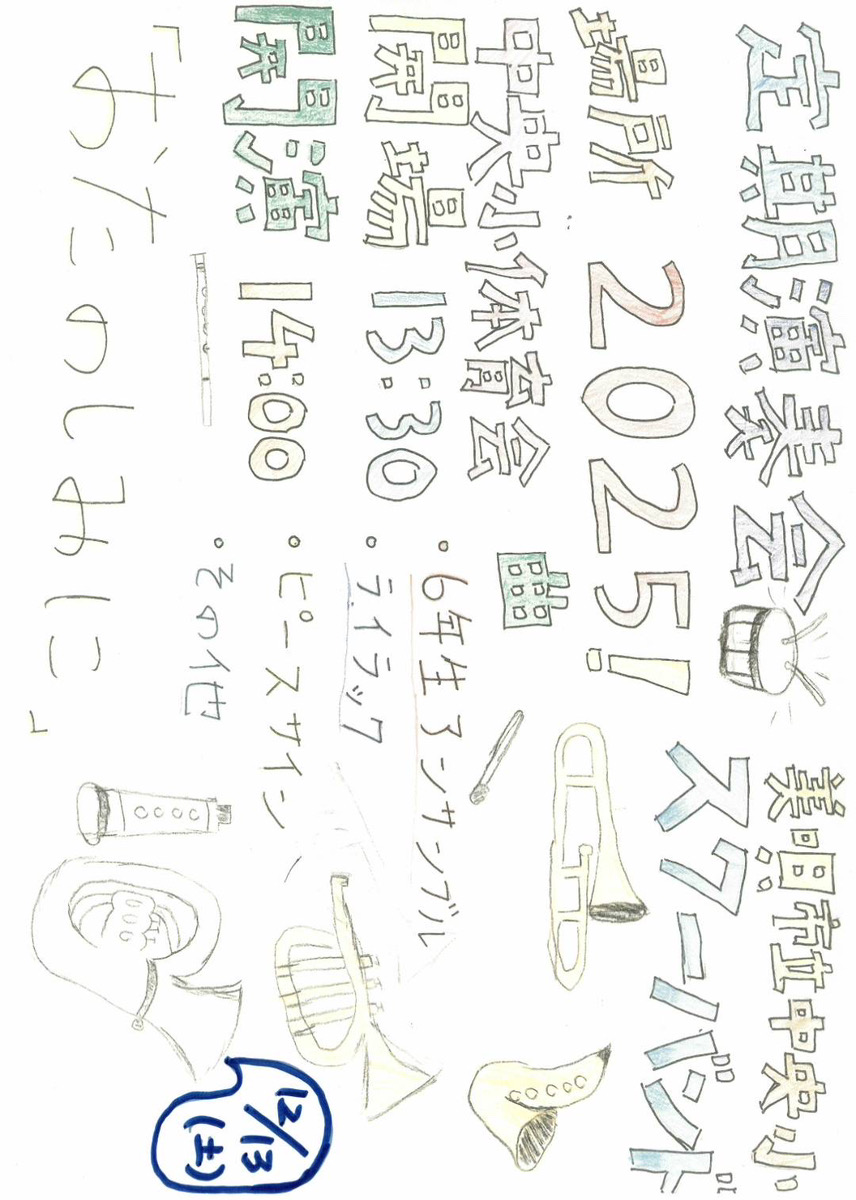 定期演奏会
美唄市立中央小
スクーバンド
2025!
場所
中央小体育会
開場 13:30
開演 14:00
・6年生アンサンブル
・ライラック
・ピースサイン
・その他
「おたのしみに」
12/13
(土)